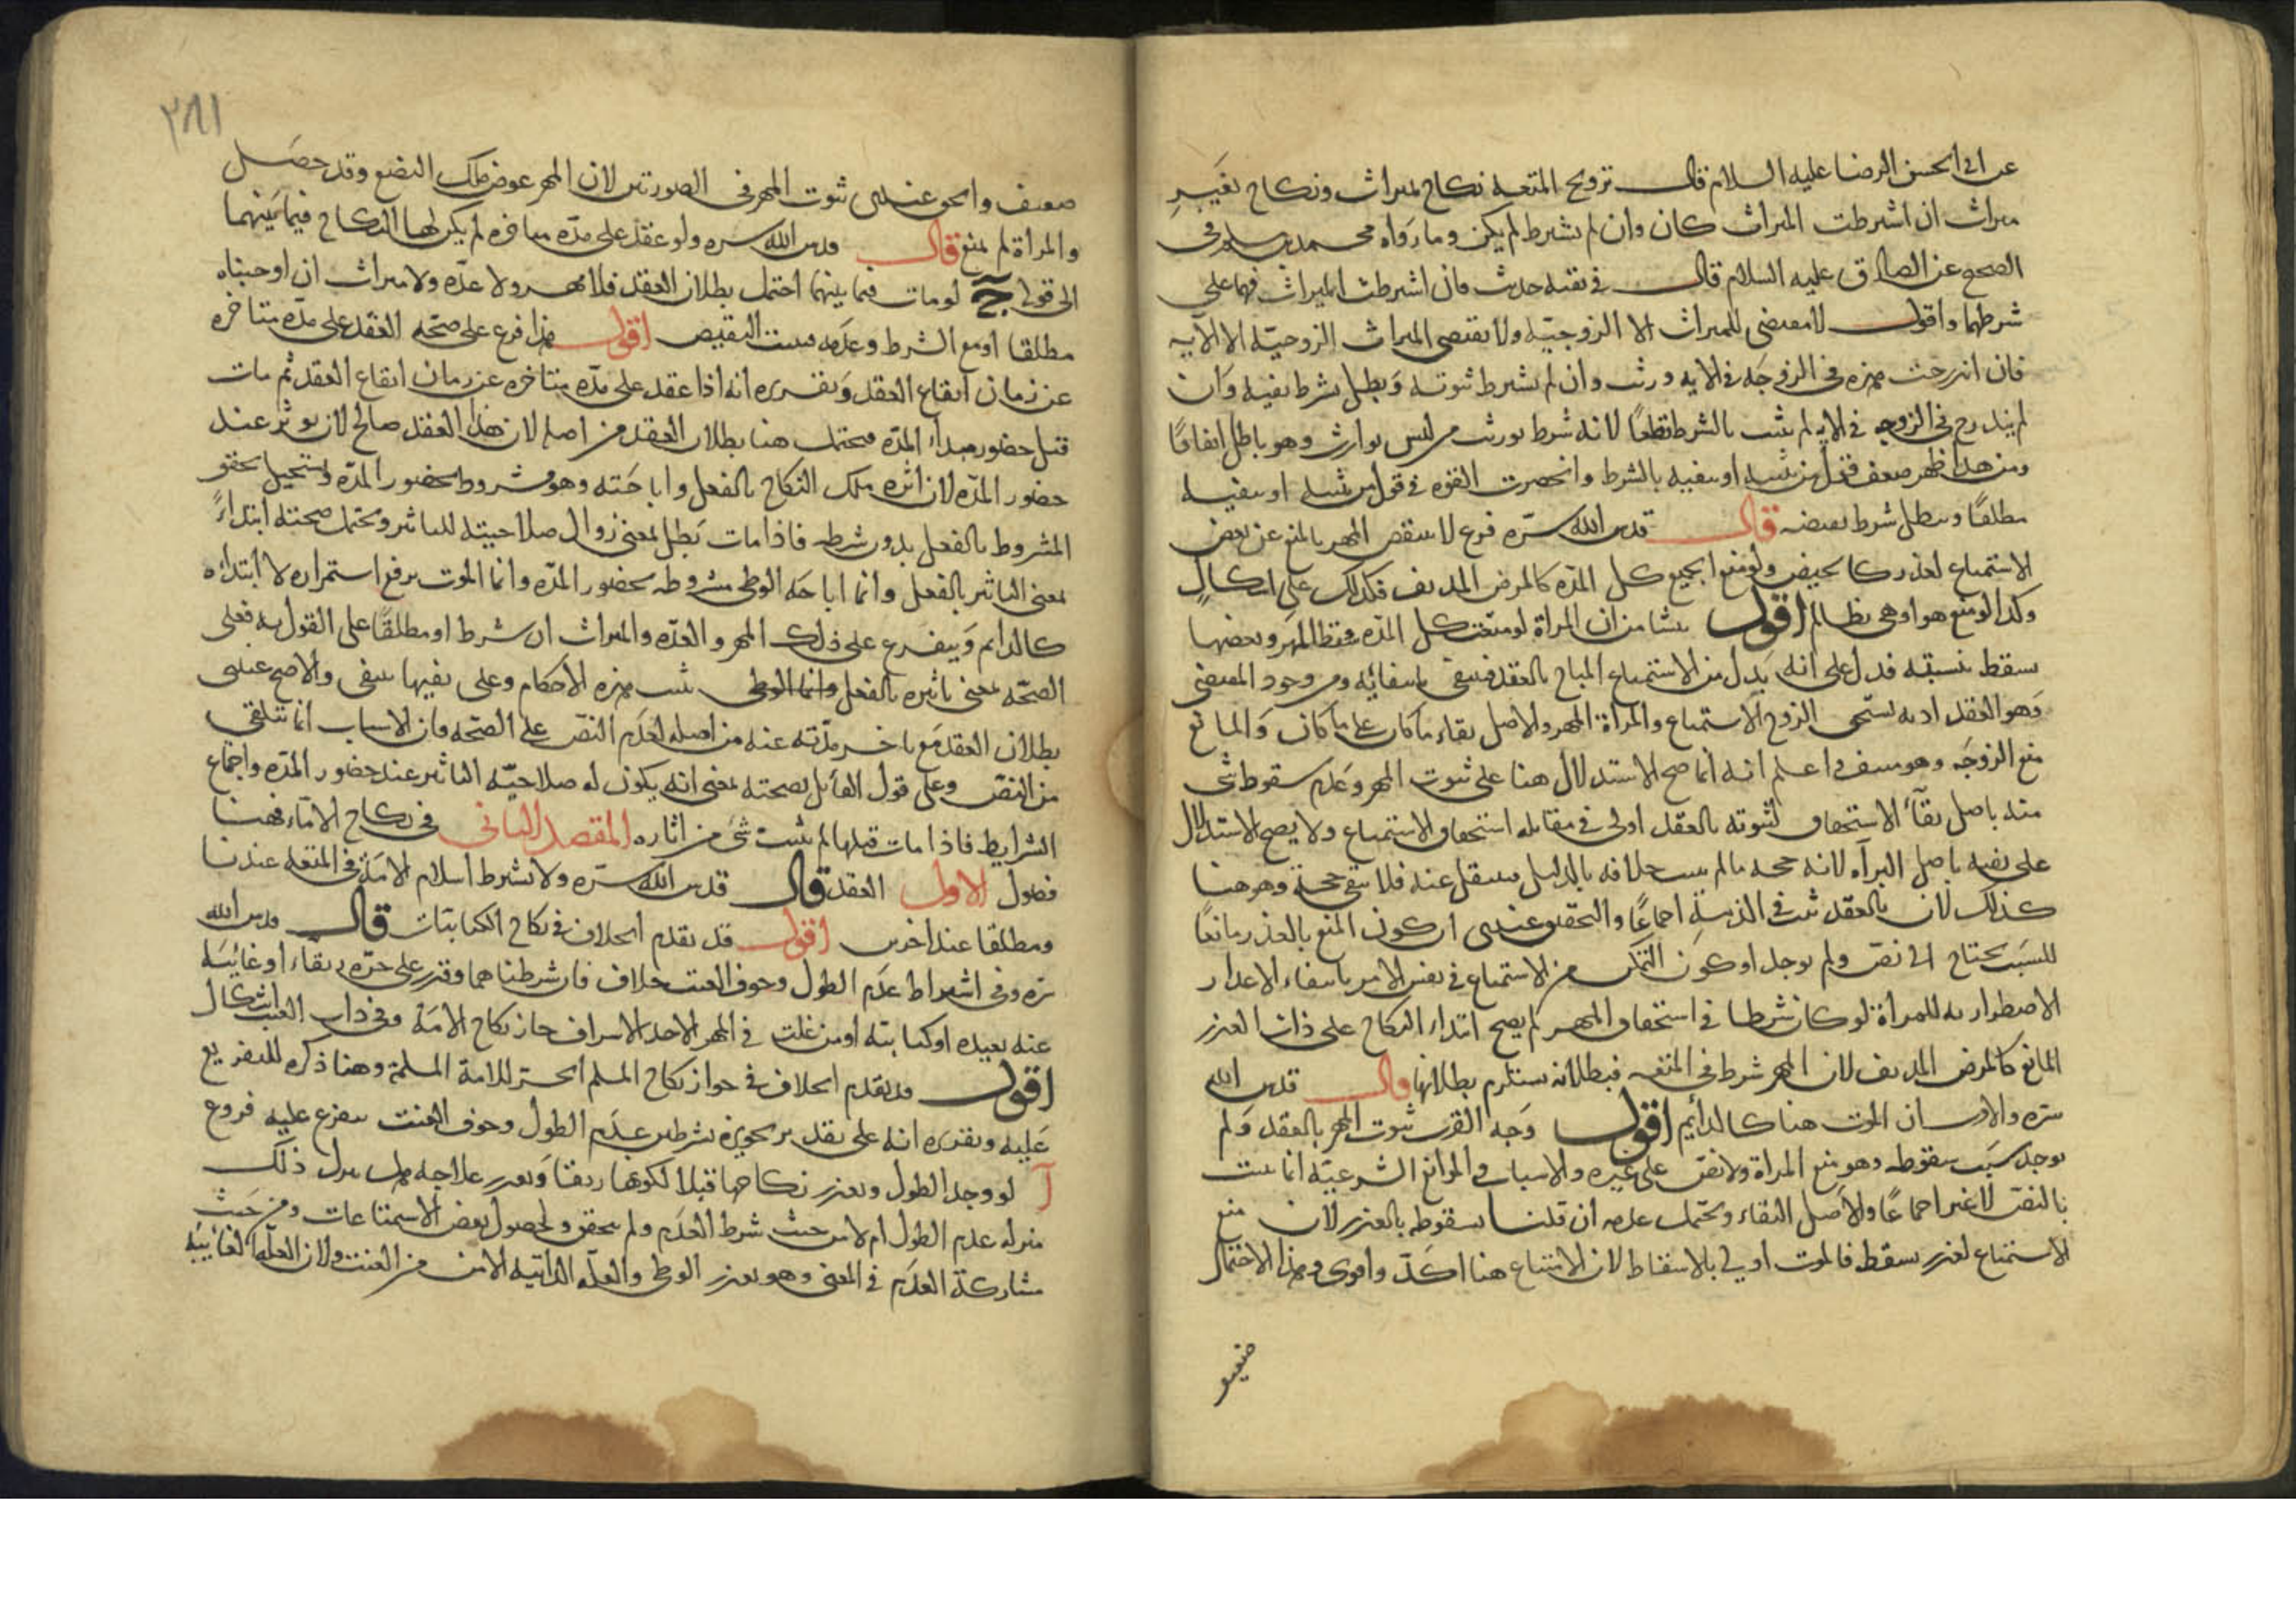 عن ابى الحسن الرضا عليه السلام قال تزويج المتعه نكاح بميراث ونكاح بغير
ميراث ان اشترطت الميراث كان وان لم يشترط لم يكن وما رواه محمد بن مسلم فى
الصحيح عن الصادق عليه السلام قال فى بقيه حديث فان اشترطت الميراث فهما على
شرطهما واقول لا مقتضى للميراث الا الزوجيّه ولا يقتضى الميراث الزوجيّه الا الآيه
فان اندرجت هذه فى الزوجه فى الايه ورثت وان لم يشترط ثبوته ويطل شرط نفيه وان
لم يندرج فى الزوجه فى الايه لم يثبت بالشرط قطعًا لانه شرط توريث من ليس بوارث وهو باطل اتفاقًا
ومن هذا ظهر ضعف قول من يثبته او ينفيه بالشرط وانحصرت القوه فى قول من يثبته او ينفيه
مطلقًا ويبطل شرط نقيضه قال قدس الله سرّه فرع لا ينقص المهر بالمنع عن بعض
الاستمتاع لعذر كالحيض ولو منع الجميع كل المدّه كالمرض المدنف فكذلك على اشكال
وكذا لو منع هو او هى بظالم اقول ينشا من ان المراة لو منعت كل المدّه سقط المهر وبعضها
يسقط بنسبته فدل على انه بدل من الاستمتاع المباح بالعقد فينتفى بانتفائه ومن وجود المقتضى
وهو العقد اذ به يستحق الزوج الاستمتاع والمراة المهر والاصل بقاء ما كان على ما كان والمانع
منع الزوجه وهو منتف واعلم انه انما صح الاستدلال هنا على ثبوت المهر وعدم سقوط شى
منه باصل بقآء الاستحقاق لثبوته بالعقد اولى فى مقابله استحقاق الاستمتاع ولا يصح الاستدلال
على نفيه باصل البرآه لانه حجه ما لم يثبت خلافه بالدليل فينتقل عنه فلا يبقى حجة وهو هنا
كذلك لان بالعقد ثبت فى الذمه اجماعًا والتحقيق عندى ان كون المنع بالعذر مانعًا
للسبب يحتاج الى نصّ ولم يوجد او كون التمكن من الاستمتاع فى نفس الامر بانتفاء الاعذار
الاضطراريه للمراة لو كان شرطا فى استحقاق المهر لم يصح ابتداء النكاح على ذات العذر
المانع كالمرض المدنف لان المهر شرط فى المتعه فبطلانه يستلزم بطلانها قال قدس الله
سرّه والاقرب ان الموت هنا كالدائم اقول وجه القرب ثبوت المهر بالعقد ولم
يوجد سبب سقوطه وهو منع المراة ولا نصّ على غيره والاسباب والموانع الشرعيّه انما يثبت
بالنصّ لا غير اجماعًا والاصل البقاء ويحتمل عدمه ان قلنا بسقوطه بالعذر لان منع
الاستمتاع لعذر يسقط فالموت اولى بالاسقاط لان الامتناع هنا اكدّ واقوى وهذا الاحتمال
ضعيف
٣٨١
ضعيف والحق عندى ثبوت المهر فى الصورتين لان المهر عوض ملك البضع وقد حصل
والمراة لم تمنع قال قدس الله سره ولو عقد على مدّه متاخره لم يكن لها النكاح فيما بينهما
الى قوله ج لو مات فيما بينهما احتمل بطلان العقد فلا مهر ولا عدّه ولا ميراث ان اوجبناه
مطلقا او مع الشرط وعدمه فيثبت النقيض اقول هذا فرع على صحّه العقد على مدّه متاخره
عن زمان ايقاع العقد وتقريره انه اذا عقد على مدّه متاخره عن زمان ايقاع العقد ثم مات
قبل حضور مبدأ المدّه فيحتمل هنا بطلان العقد من اصله لان هذا العقد صالح لان يوثر عند
حضور المدّه لان اثره ملك النكاح بالفعل واباحته وهو مشروط بحضور المدّه ويستحيل تحقق
المشروط بالفعل بدون شرطه فاذا مات بطل لمعنى زوال صلاحيته للتاثير ويحتمل صحته ابتداءً
لمعنى التاثير بالفعل وانما اباحه الوطى مشروطه بحضور المدّه وانما الموت يرفع استمراره لا ابتداءه
كالدائم ويتفرع على ذلك المهر والعدّه والميراث ان شرط او مطلقًا على القول به فعلى
الصحّه بمعنى تاثيره بالفعل وانما الوطى يثبت هذه الاحكام وعلى نفيها ينتفى والاصح عندى
بطلان العقد مع تاخر مدّته عنه من اصله لعدم النصّ على الصحّه فان الاسباب انما تتلقى
من النصّ وعلى قول القائل بصحته بمعنى انه يكون له صلاحيّه التاثير عند حضور المدّه واجتماع
الشرايط فاذا مات قبلها لم يثبت شى من اثاره المقصد الثانى فى نكاح الامآء فهنا
فصول الاول العقد قال قدس الله سرّه ولا يشترط اسلام الامة فى المتعه عندنا
ومطلقا عند اخرين اقول قد تقدم الخلاف فى نكاح الكتابيات قال قدس الله
سره وفى اشتراط عدم الطول وخوف العنت خلاف فان شرطناهما وقدر على حرّه رتقاء او غائبة
عنه بعيده او كتابيّه او من غلت فى المهر الا حد الاسراف جاز نكاح الامة وفى ذات العيب اشكال
اقول قد تقدم الخلاف فى جواز نكاح المسلم الحر للامة المسلمة وهنا ذكره للتفريع
عليه وتقريره انه على تقدير تجويزه بشرطين عدم الطول وخوف العنت يتفرع عليه فروع
آ لو وجد الطول وتعذر نكاحها قبلا لكونها رتقا وتعذر علاجه فهل ينزل ذلك
منزله عدم الطول ام لا من حيث شرط العدم ولم يتحقق ولحصول بعض الاستمتاعات ومن حيث
مشاركة العدم فى المعنى وهو تعذر الوطى والعلّه الذاتيه الامن من العنت ولان العلّه الغائيّه